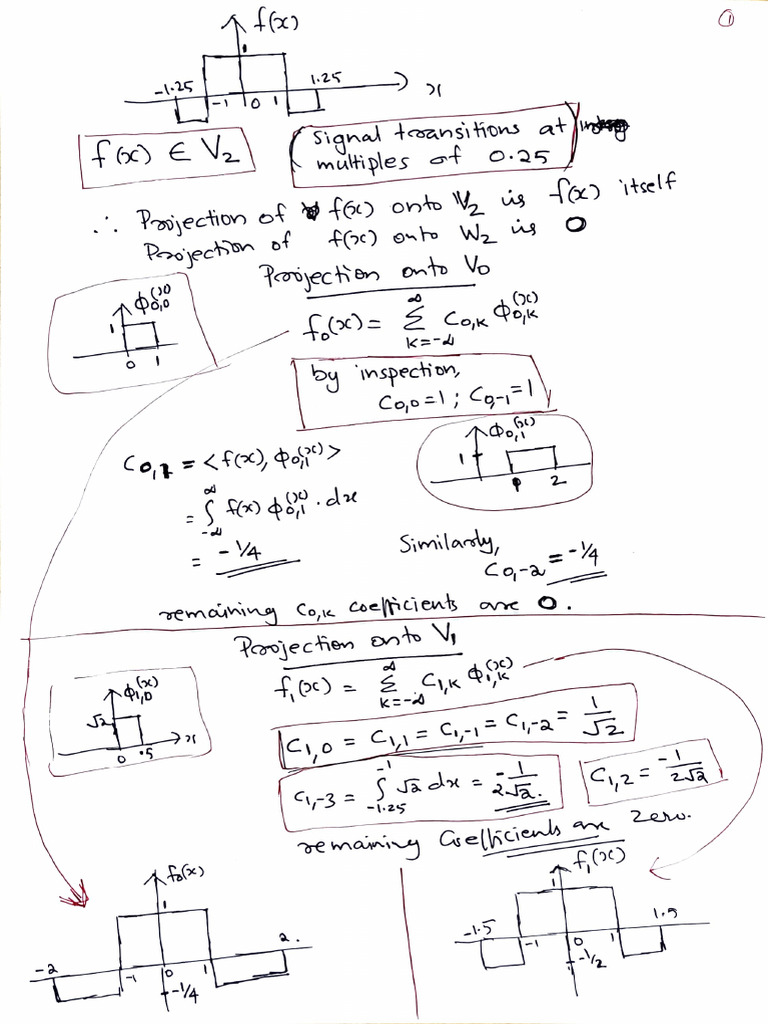 ①
f(x)
1
-1.25 -1 0 1 1.25 x
f(x) ∈ V₂
(signal transitions at
multiples of 0.25)
∴ Projection of f(x) onto V₂ is f(x) itself
Projection of f(x) onto W₂ is 0
Projection onto V₀
ϕ₀,₀(x)
1
0 1
f₀(x) = ∑_{k=-∞}^{∞} C₀,ₖ ϕ₀,ₖ(x)
by inspection,
C₀,₀ = 1 ; C₀,₋₁ = 1
ϕ₀,₁(x)
1
1 2
C₀,₁ = <f(x), ϕ₀,₁(x)>
= ∫_{-∞}^{∞} f(x) ϕ₀,₁(x) · dx
= -1/4
Similarly,
C₀,₋₂ = -1/4
remaining C₀,ₖ coefficients are 0.
Projection onto V₁
ϕ₁,₀(x)
√2
0 .5 x
f₁(x) = ∑_{k=-∞}^{∞} C₁,ₖ ϕ₁,ₖ(x)
C₁,₀ = C₁,₁ = C₁,₋₁ = C₁,₋₂ = 1/√2
C₁,₋₃ = ∫_{-1.25}^{-1} √2 dx = -1/2√2.
C₁,₂ = -1/2√2
remaining Coefficients are zero.
f₀(x)
1
-2 -1 0 1 2.
-1/4
f₁(x)
1
-1.5 -1 0 1 1.5
-1/2